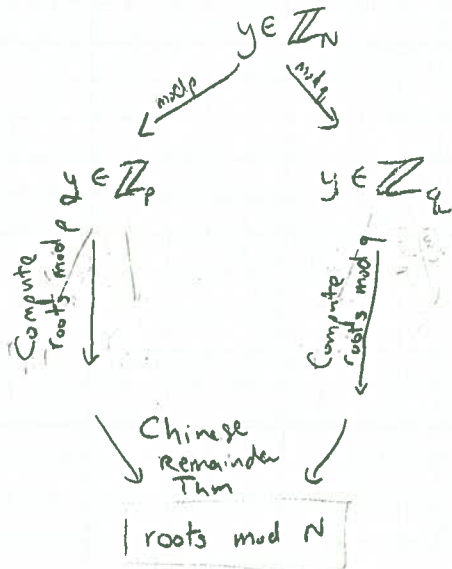 y ∈ ℤ_N
mod p
mod q
y ∈ ℤ_p
y ∈ ℤ_q
Compute
roots mod p
Compute
roots mod q
Chinese
Remainder
Thm
roots mod N